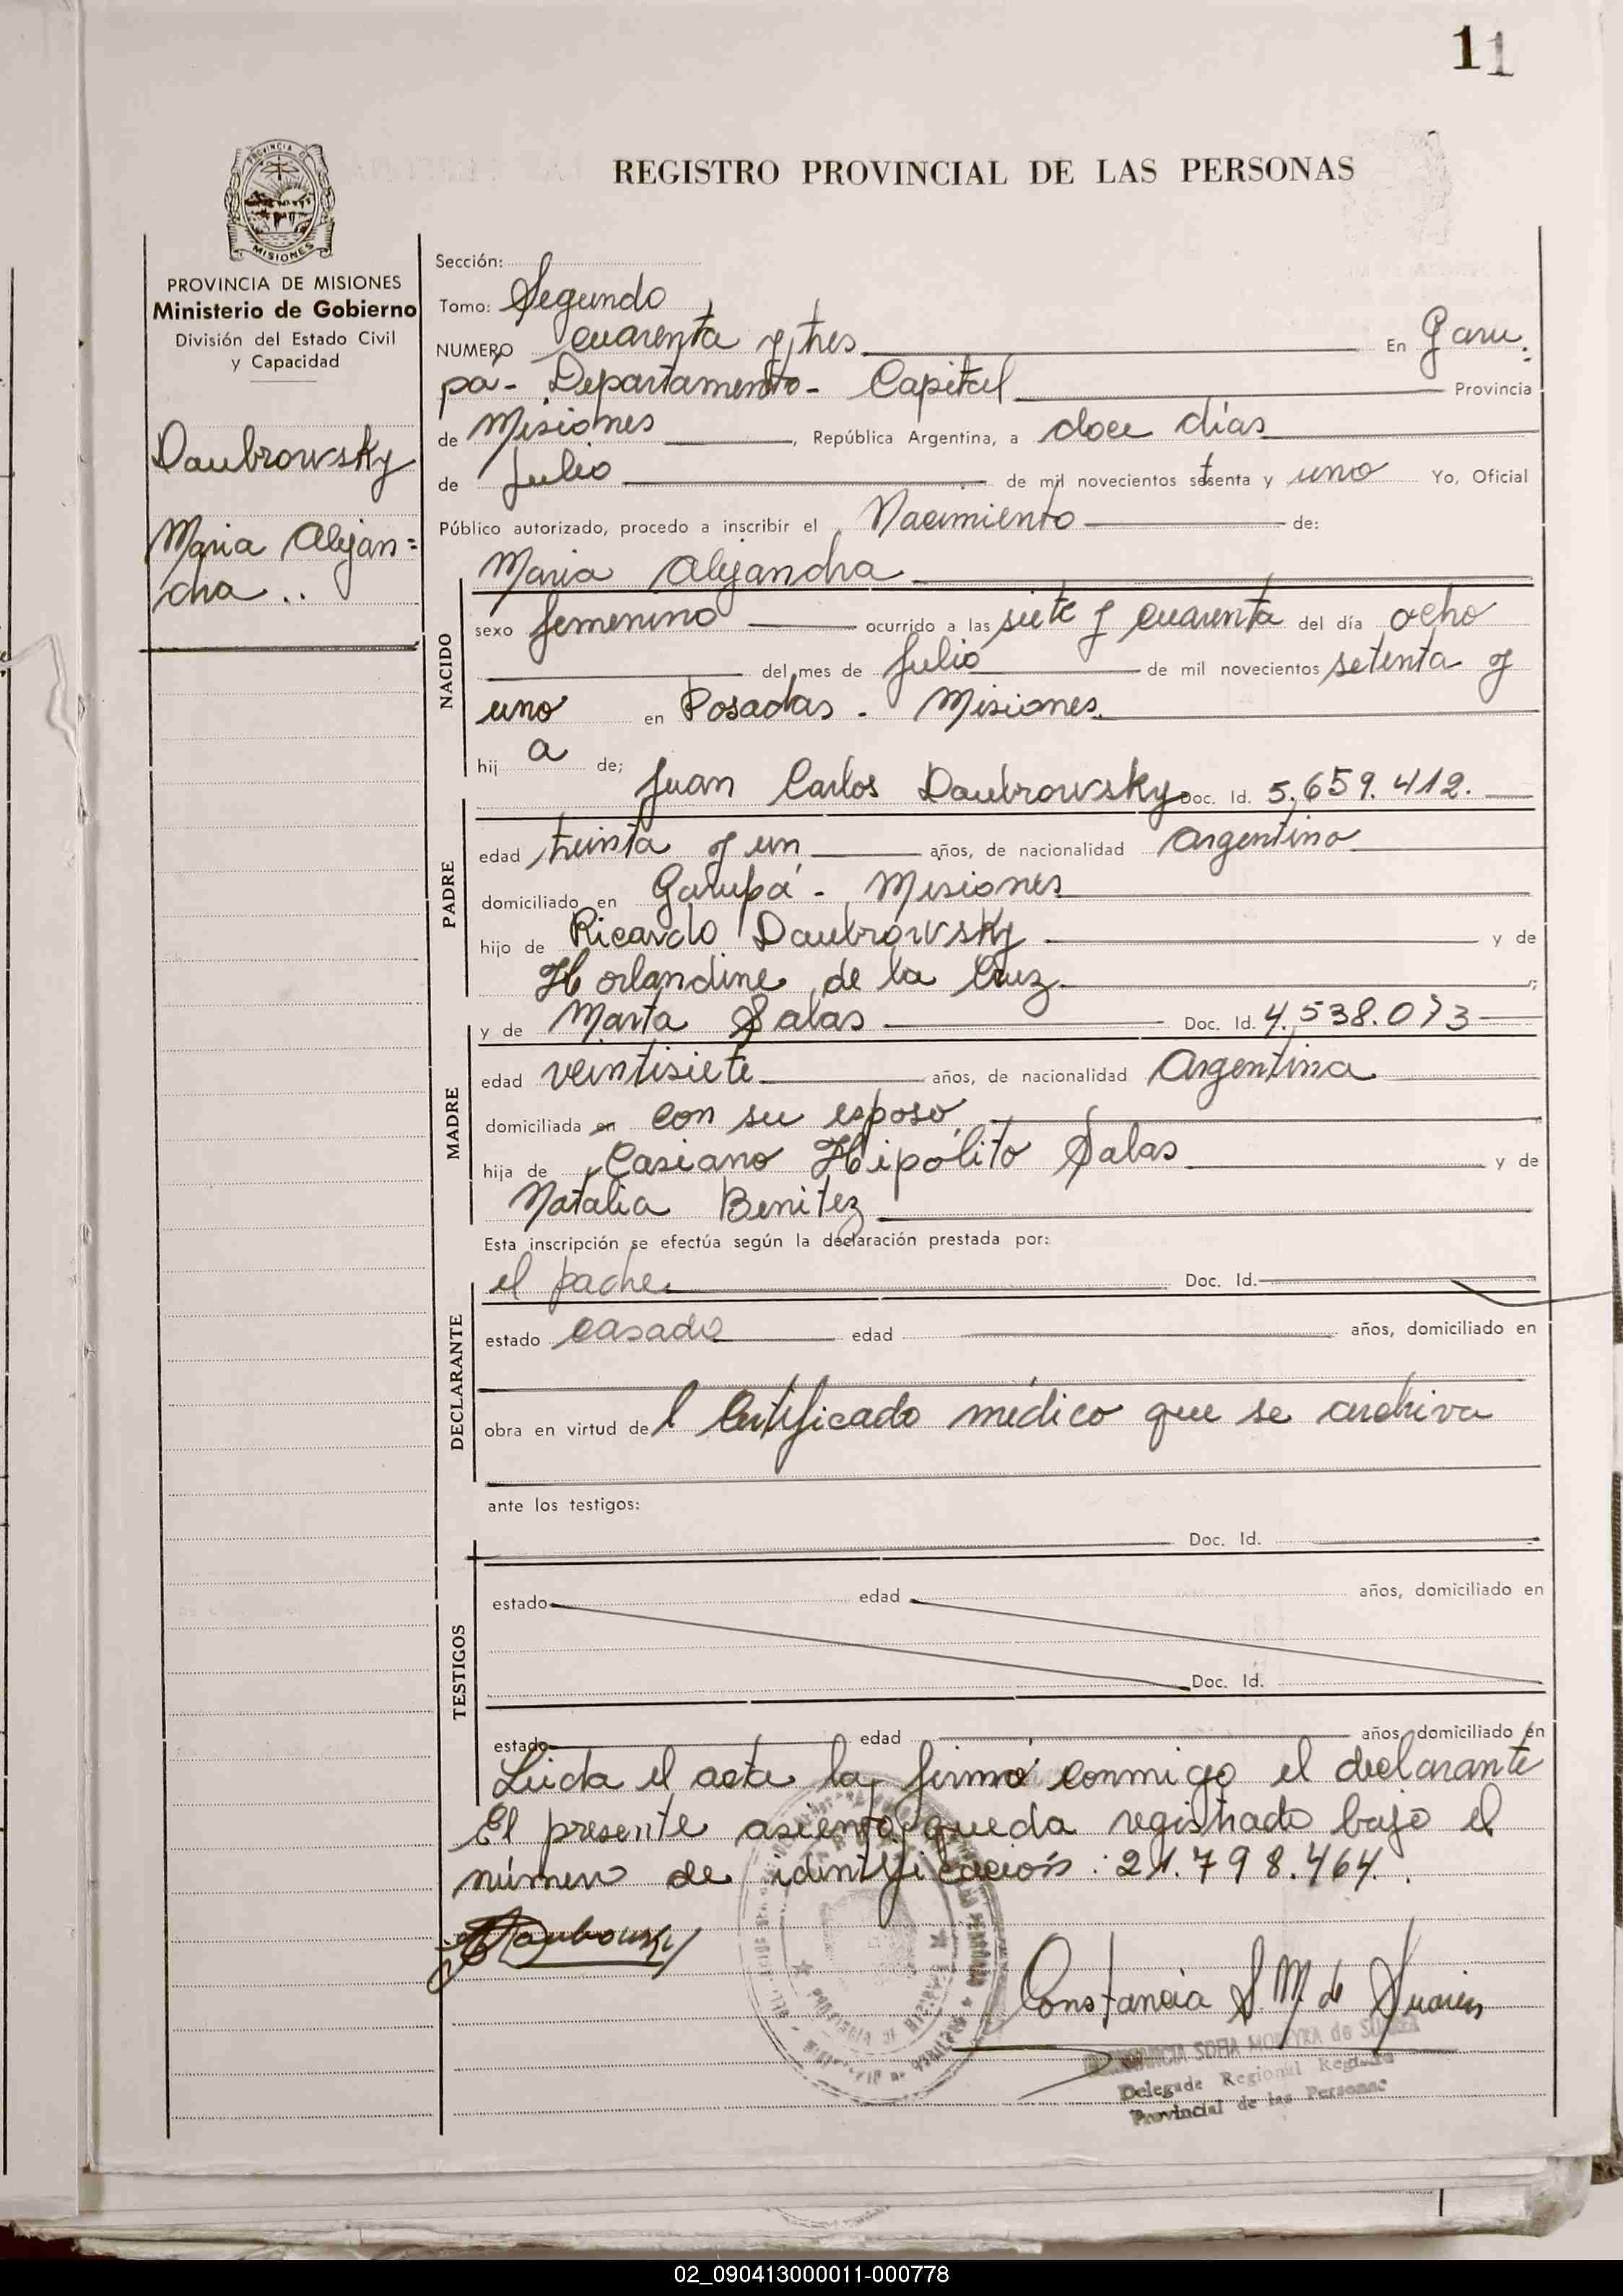 11
REGISTRO PROVINCIAL DE LAS PERSONAS
PROVINCIA DE MISIONES
Ministerio de Gobierno
División del Estado Civil
y Capacidad
Daubrowsky
Maria Alejan=
dra..
Sección:
Tomo: Segundo
NUMERO cuarenta y tres En Garu
pá - Departamento - Capital Provincia
de Misiones, República Argentina, a doce días
de Julio de mil novecientos setenta y uno Yo, Oficial
Público autorizado, procedo a inscribir el Nacimiento de:
Maria Alejandra
NACIDO
sexo femenino ocurrido a las siete y cuarenta del día ocho
del mes de Julio de mil novecientos setenta y
uno en Posadas - Misiones.
hij a de;
Juan Carlos Daubrowsky Doc. Id. 5.659.412.
PADRE
edad treinta y un años, de nacionalidad Argentino
domiciliado en Garupá - Misiones
hijo de Ricardo Daubrowsky y de
Horlandine de la Cruz ;
y de Marta Salas Doc. Id. 4.538.073
MADRE
edad veintisiete años, de nacionalidad Argentina
domiciliada en con su esposo,
hija de Casiano Hipólito Salas y de
Natalia Benitez
Esta inscripción se efectúa según la declaración prestada por:
el padre Doc. Id.
DECLARANTE
estado casado edad años, domiciliado en
obra en virtud del Certificado médico que se archiva
ante los testigos:
Doc. Id.
TESTIGOS
estado edad años, domiciliado en
Doc. Id.
estado edad años, domiciliado en
Leida el acta la firmó conmigo el declarante
El presente asiento queda registrado bajo el
número de identificación: 21.798.464.
Constancia S. M. de Suarez
SOFIA MOREYRA de
Delegada Regional Registro
Provincial de las Personas
02_090413000011-000778